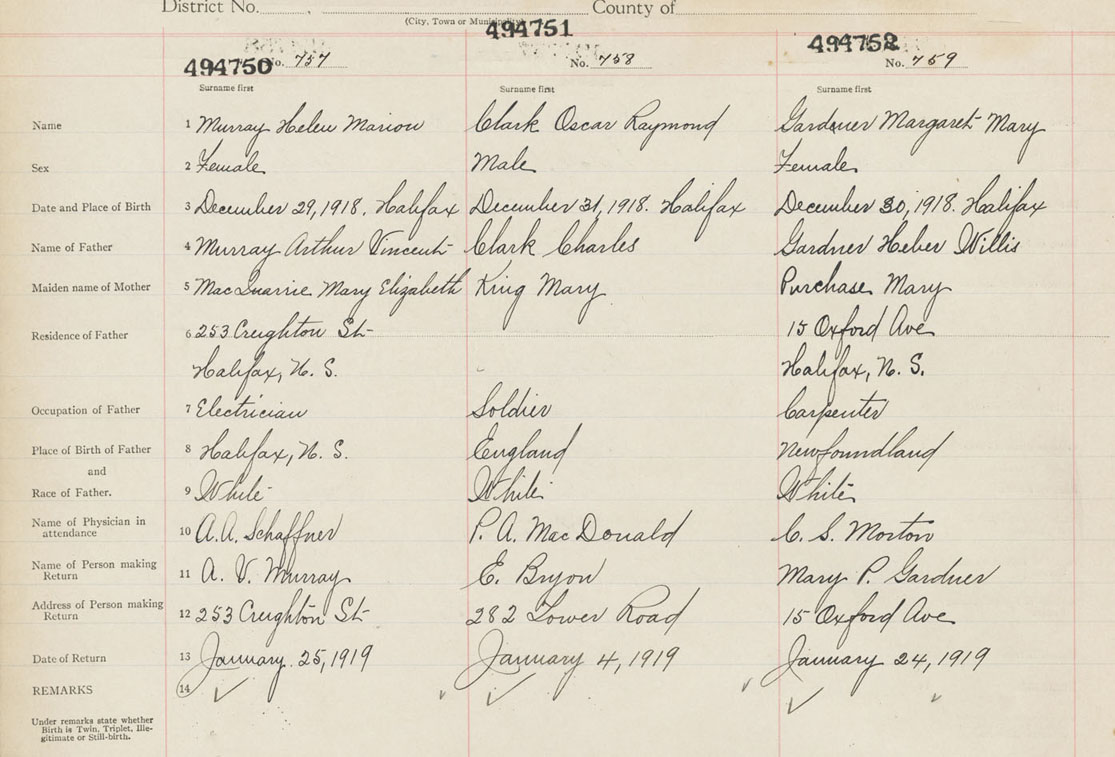 District No. County of
(City, Town or Municipality)
494750 494751 494752
No. 757 No. 758 No. 759
Surname first Surname first Surname first
Name 1 Murray Helen Marion Clark Oscar Raymond Gardner Margaret Mary
Sex 2 Female Male Female
Date and Place of Birth 3 December 29, 1918. Halifax December 31, 1918. Halifax December 30, 1918. Halifax
Name of Father 4 Murray Arthur Vincent Clark Charles Gardner Heber Willis
Maiden name of Mother 5 MacQuarrie Mary Elizabeth King Mary Purchase Mary
Residence of Father 6 253 Creighton St 15 Oxford Ave
Halifax, N. S. Halifax, N. S.
Occupation of Father 7 Electrician Soldier Carpenter
Place of Birth of Father 8 Halifax, N. S. England Newfoundland
and
Race of Father. 9 White White White
Name of Physician in
attendance 10 A. A. Schaffner P. A. MacDonald C. S. Morton
Name of Person making
Return 11 A. V. Murray E. Bryon Mary P. Gardner
Address of Person making
Return 12 253 Creighton St 282 Tower Road 15 Oxford Ave
Date of Return 13 January 25, 1919 January 4, 1919 January 24, 1919
REMARKS 14
Under remarks state whether
Birth is Twin, Triplet, Ille-
gitimate or Still-birth.